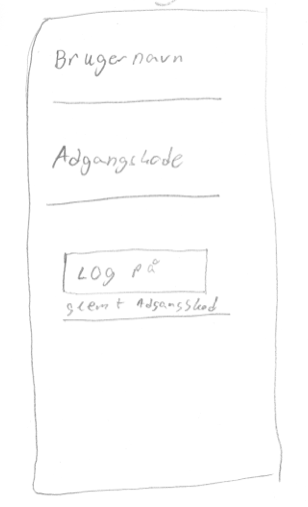 Brugernavn
Adgangskode
LOG på
glemt Adgangskod